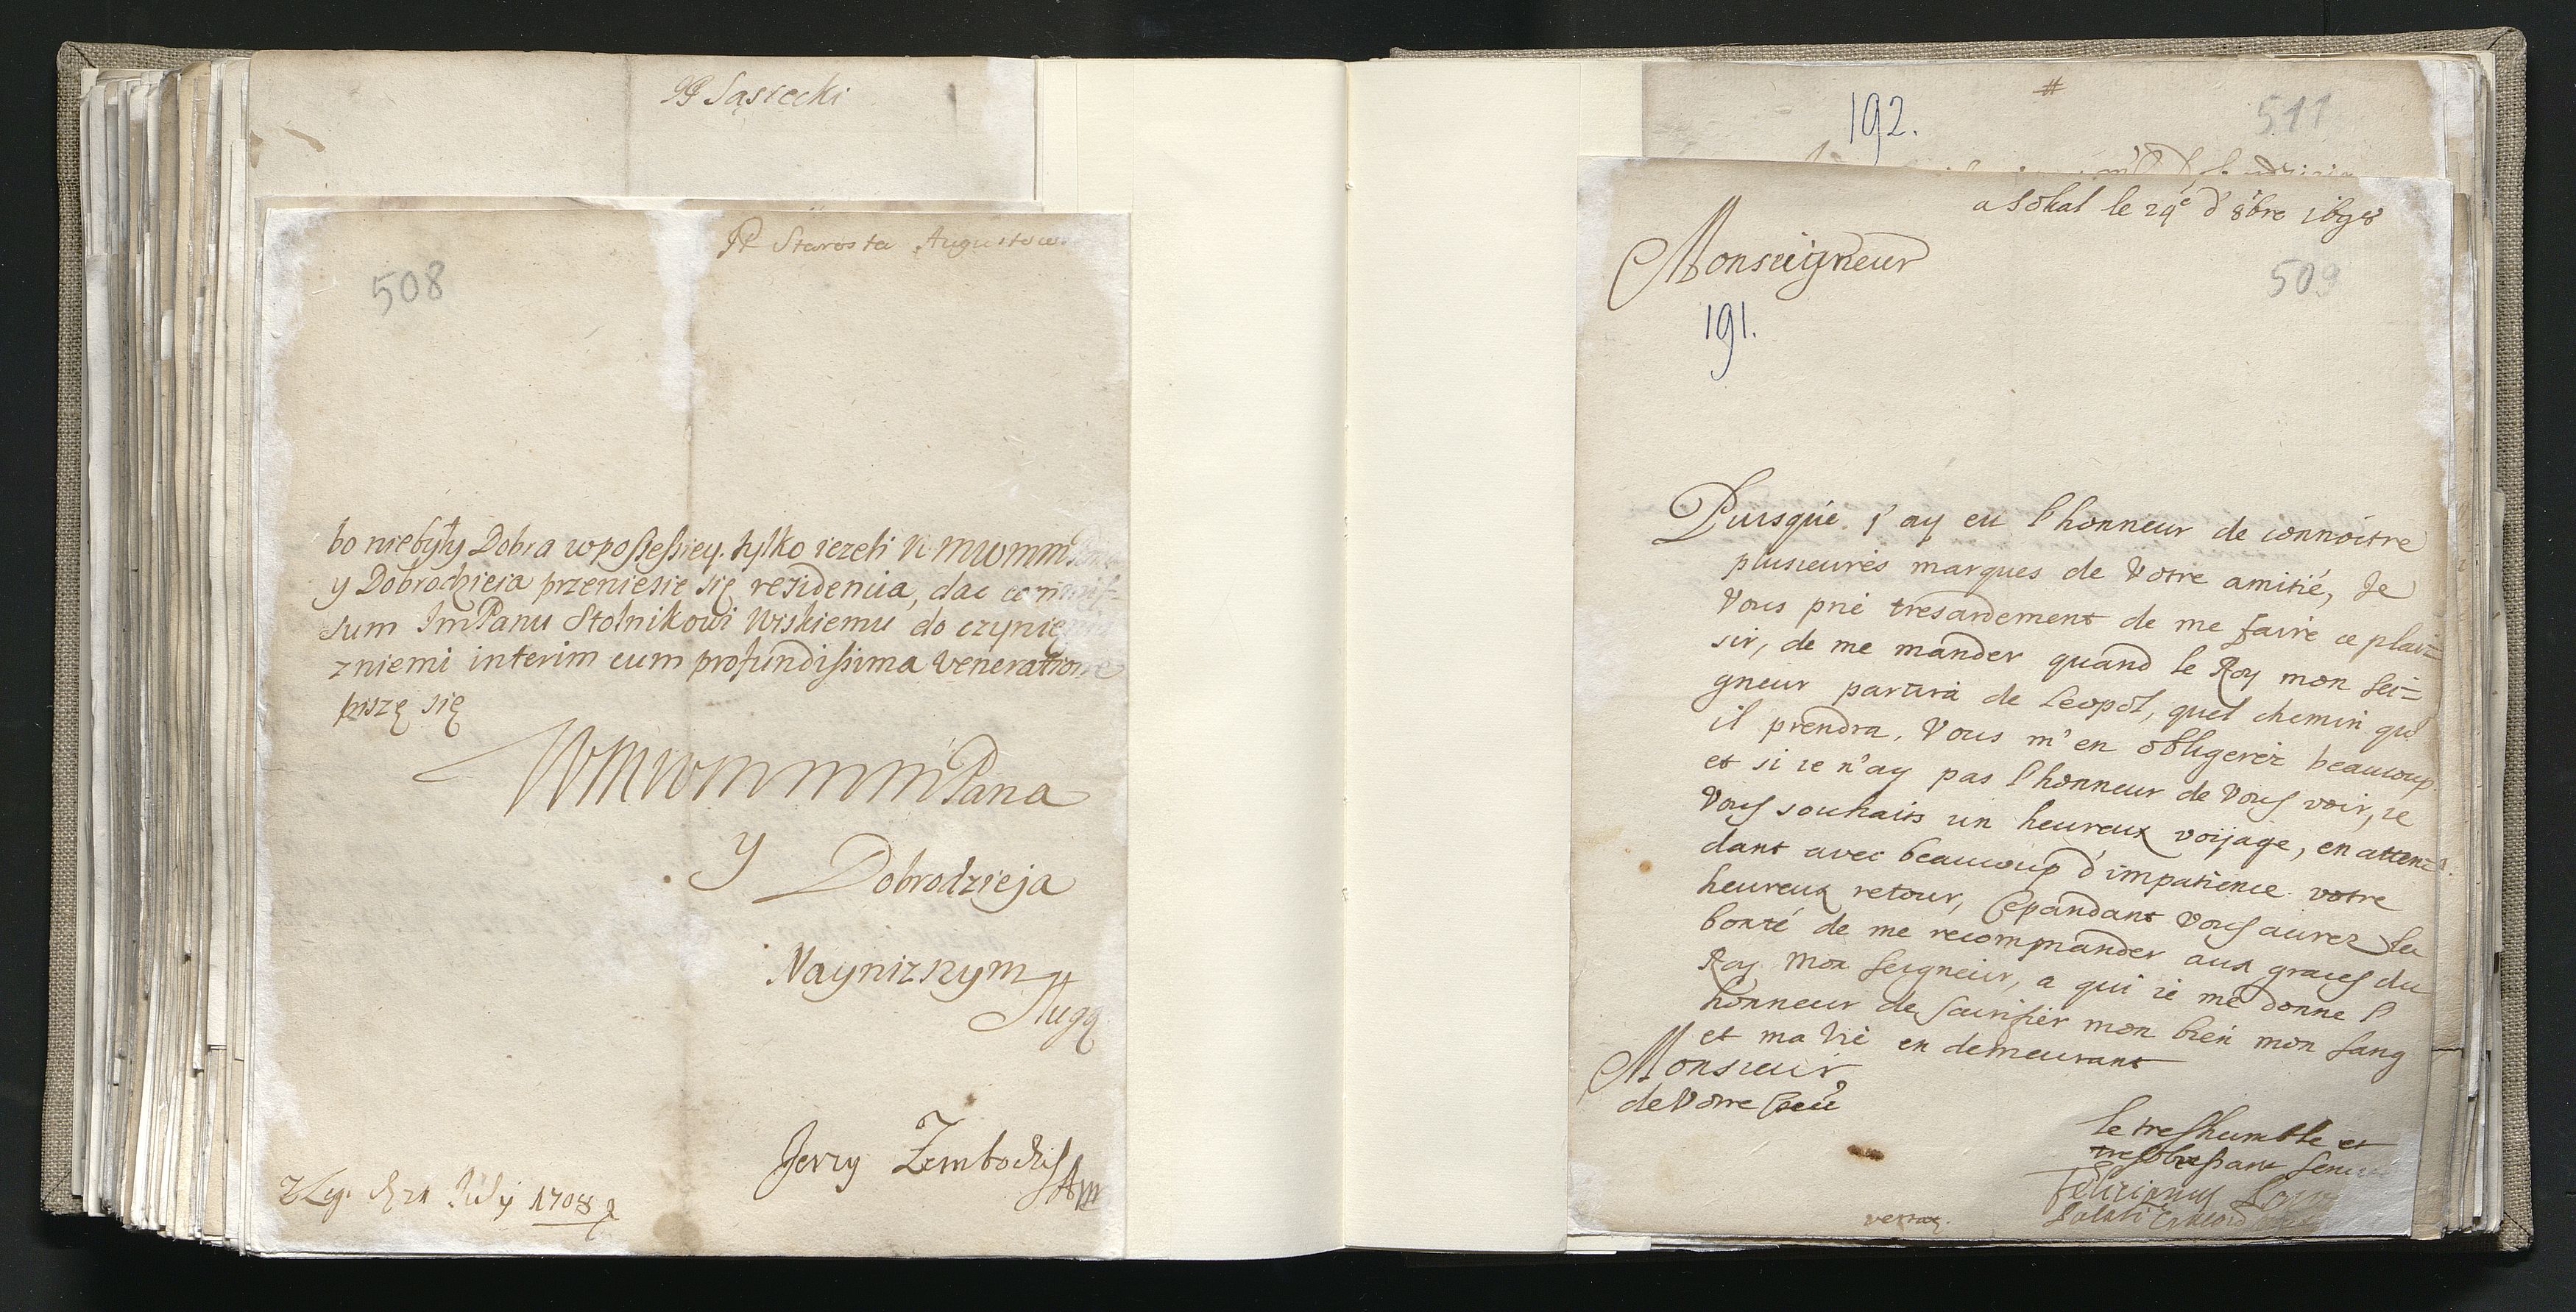 Sąsiecki
Starosta Augustow
508
bo niebyły Dobra wpossessiey. tylko iezeli
y Dobrodzieia przeniesie się residencia, dac
sum ImPanu Stolnikowi Wiskiemu do
zniemi interim cum profundissima veneratione
piszę się
WMWMMMPana
y
Dobrodzieja
Naynizszym
sługą
Jerzy
July 1708
192.
511
a Sokal le 29e d' 8bre 1698
Monseigneur
509
191.
Puisque j'ay eu l'honneur de connoitre
plusieures marques de Votre amitié, Je
Vous prie tresardement de me faire ce plai=
sir, de me mander quand le Roy mon Sei=
gneur partira de Leopol, quel chemin qu
il prendra, Vous m'en obligerez beaucoup
et si ie n'ay pas l'honneur de Vous voir, ie
Vous souhaits un heureux voijage, en atten=
dant avec beaucoup d'impatience votre
heureux retour, Cepandant Vous aurez la
bonté de me recommander aux graces du
Roy Mon Seigneur, a qui ie me donne l
honneur de sacrifier mon bien mon sang
et ma vie en demeurant
Monsieur
de Votre
le treshumble et